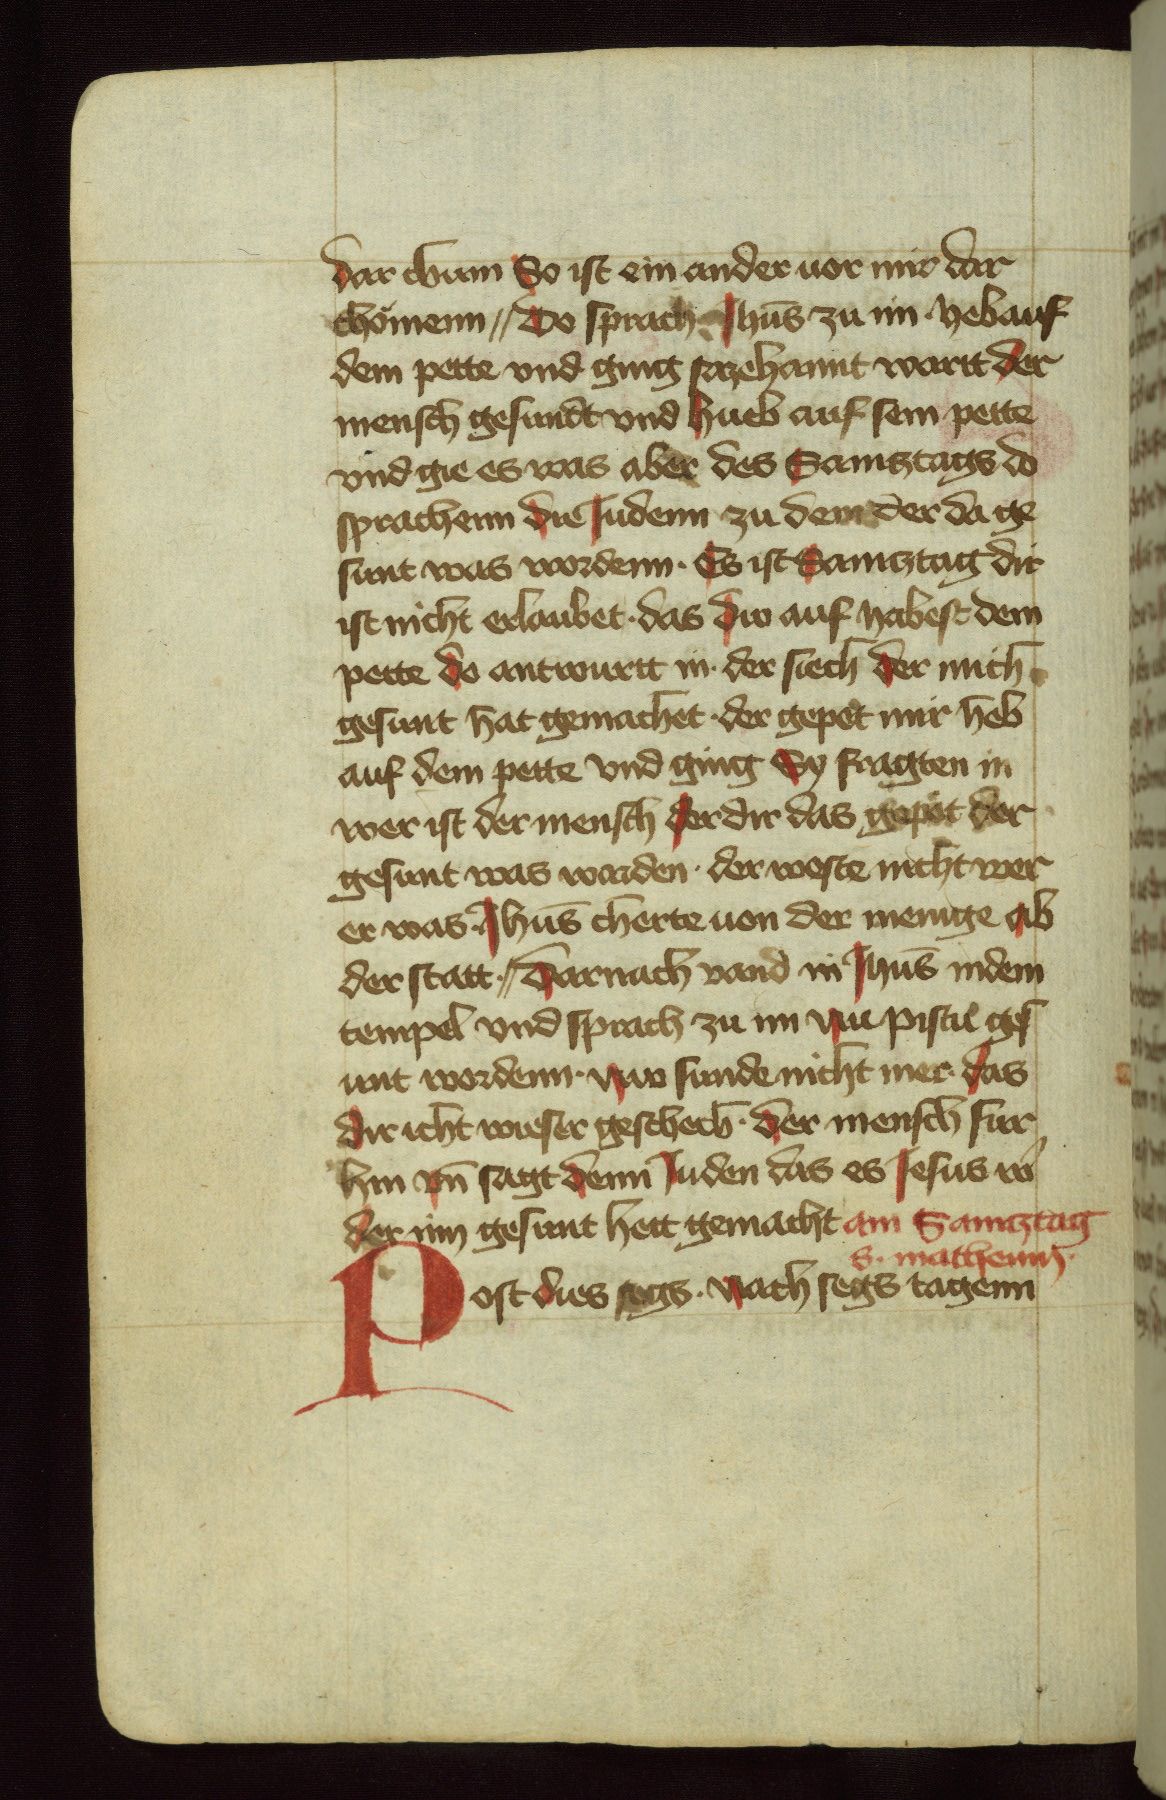 dar chum So ist ein ander uor mir dar
chömenn // Do sprach Jhus̄ zu im heb auf
dein pette vnd ging sazehannt wartt der
mensch gesundt vnd hueb auf sein pette
vnd gie es was aber des Samtztags do
sprachenn die Judenn zu dem der da ge
sunt was wordenn · Es ist Samtztag dir
ist nicht erlaubet · das dw auf habest dein
pette do antwurtt in · der siech der mich
gesunt hat gemachet · der gepot mir heb
auf dein pette vnd ging Sy fragten in
wer ist der mensch der dir das gepöt der
gesunt was worden · der weste nicht wer
er was · Jhus̄ cherte uon der menige ab
der statt · // Darnach vand in Jhus̄ in dem
tempel vnd sprach zu im nu pistu ges
unt wordenn · nw sunde nicht mer · das
dir icht wirser geschech · der mensch fur
hin vn̄ sagt denn Juden das es Jesus w
der im gesunt hett gemacht am Samtztag
s. matheum ·
Post dies segs · Nach segs tagenn